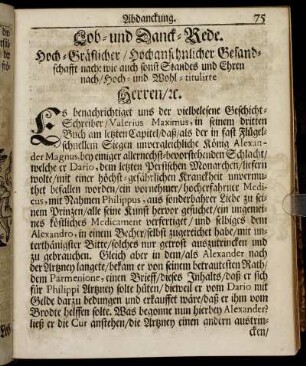 Abdanckung. 75
Lob- und Danck-Rede.
Hoch-Gräflicher / Hochansehnlicher Gesand-
schafft nach / wie auch sonst Standes und Ehren
nach / Hoch- und Wohl-titulirte
Herren / ꝛc.
Es benachrichtiget uns der vielbelesene Geschicht-
Schreiber / Valerius Maximus, in seinem dritten
Buch am letzten Capitel / daß / als der in fast Flügel-
schnellem Siegen unvergleichliche König Alexan-
der Magnus, bey einiger allernechst-bevorstehenden Schlacht /
welche er Dario, dem letzten Persischen Monarchen / liefern
wolte / mit einer höchst-gefährlichen Kranckheit unvermu-
thet befallen worden / ein vornehmer / hocherfahrner Medi-
cus, mit Nahmen Philippus, aus sonderbahrer Liebe zu sei-
nem Prinzen / alle seine Kunst hervor gesucht / ein ungemei-
nes köstliches Medicament verfertiget / und selbiges dem
Alexandro, in einem Becher / selbst zugereichet habe / mit un-
terthänigster Bitte / solches nur getrost auszutrincken und
zu gebrauchen. Gleich aber in dem / als Alexander nach
der Artzney langete / bekam er von seinem betrautesten Rath /
dem Parmenione, einen Brieff / dieses Inhalts / daß er sich
für Philippi Artzney solte hüten / dieweil er vom Dario mit
Gelde darzu bedungen und erkauffet wäre / daß er ihm vom
Brodte helffen solte. Was begonte nun hierbey Alexander?
ließ er die Cur anstehen / die Artzney einen andern austrin-
cken /